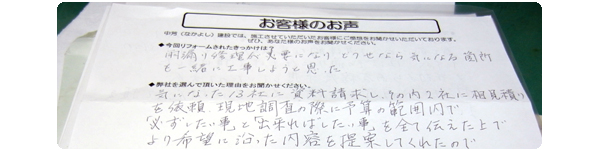 お客様のお声
中河（なかよし）建設では、施工させていただいたお客様にご感想をお聞かせいただいております。
ぜひ、あなた様のお声をお聞かせください。
◆今回リフォームされたきっかけは？
雨漏り修理が必要になり どうせなら気になる箇所
も一緒に工事しようと思った
◆弊社を選んで頂いた理由をお聞かせください。
気になった13社に資料請求し、その内2社に相見積り
を依頼 現地調査の際に予算の範囲内で
"必ずしたい事"と"出来ればしたい事"を全て伝えた上で
より希望に沿った内容を提案してくれたので